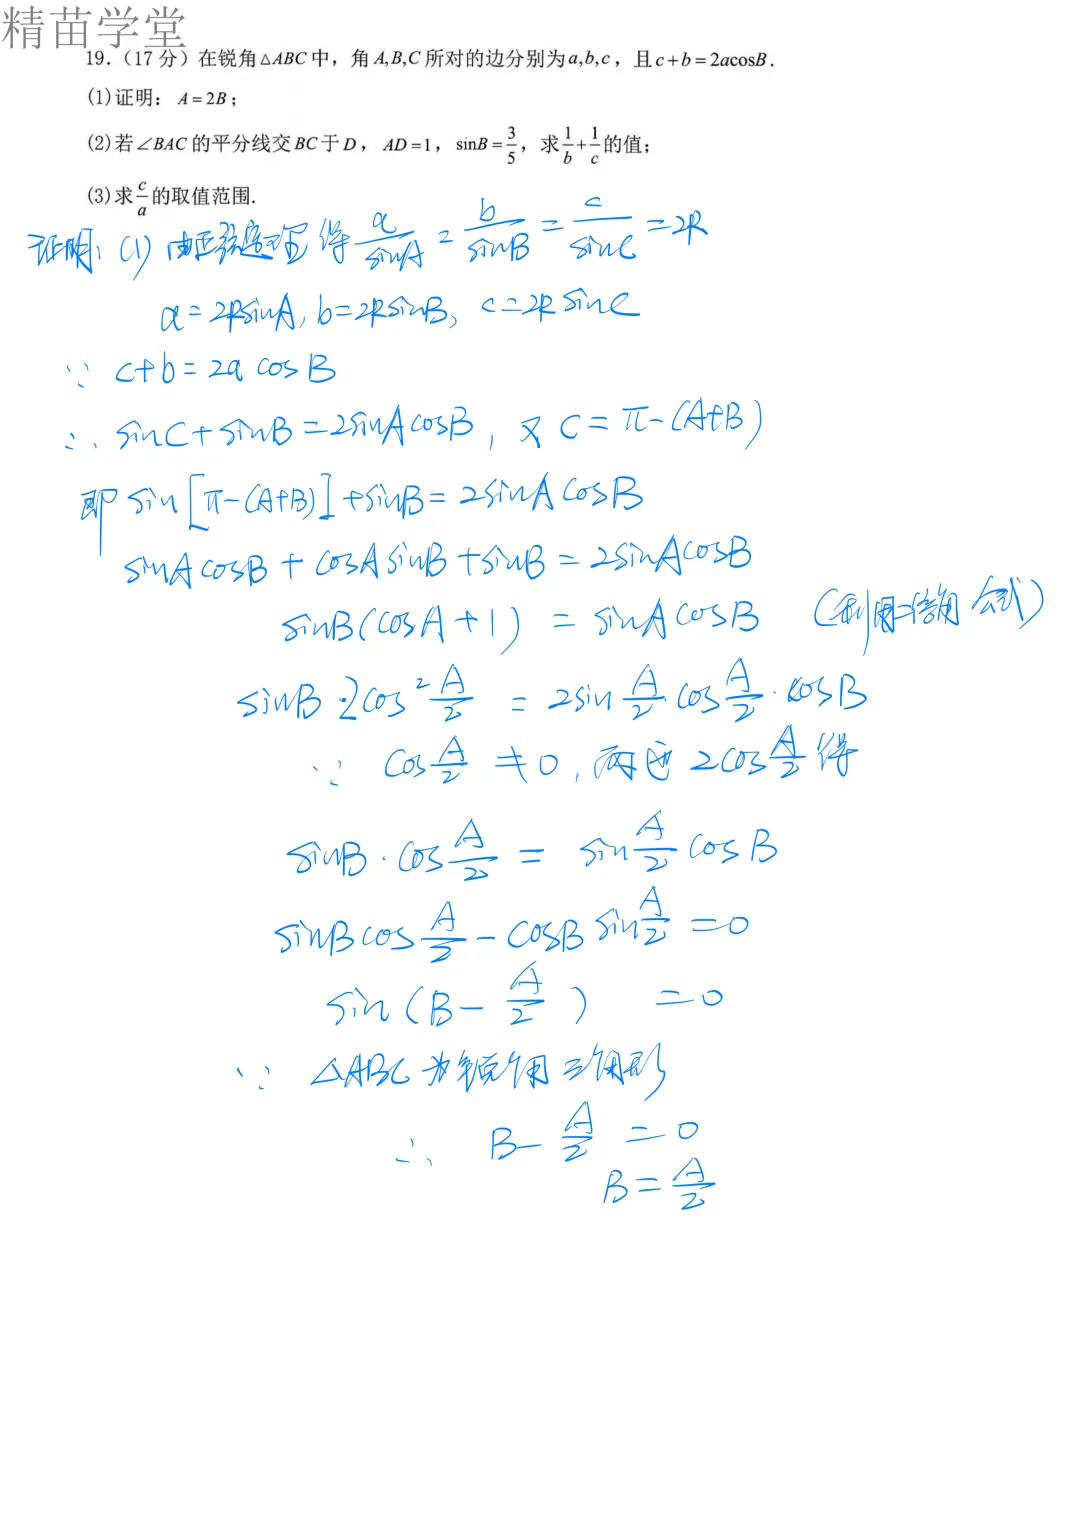 精苗学堂
19.（17 分）在锐角△ABC 中，角 A,B,C 所对的边分别为 a,b,c，且 c+b=2acosB.
(1)证明：A=2B；
(2)若∠BAC 的平分线交 BC 于 D，AD=1，sinB=3/5，求 1/b+1/c 的值；
(3)求 c/a 的取值范围.
证明：(1) 由正弦定理得 a/sinA = b/sinB = c/sinC = 2R
a=2RsinA, b=2RsinB, c=2RsinC
∵ c+b=2a cosB
∴ sinC+sinB=2sinAcosB，又 C=π-(A+B)
即 sin[π-(A+B)]+sinB=2sinAcosB
sinAcosB+cosAsinB+sinB=2sinAcosB
sinB(cosA+1) = sinAcosB （利用二倍角公式）
sinB·2cos²A/2 = 2sin A/2·cos A/2·cosB
∵ cos A/2 ≠0, 两边 2cos A/2 得
sinB·cos A/2 = sin A/2 cosB
sinBcos A/2 - cosBsin A/2 =0
sin(B- A/2) =0
∵ △ABC为锐角三角形
∴ B- A/2 =0
B= A/2